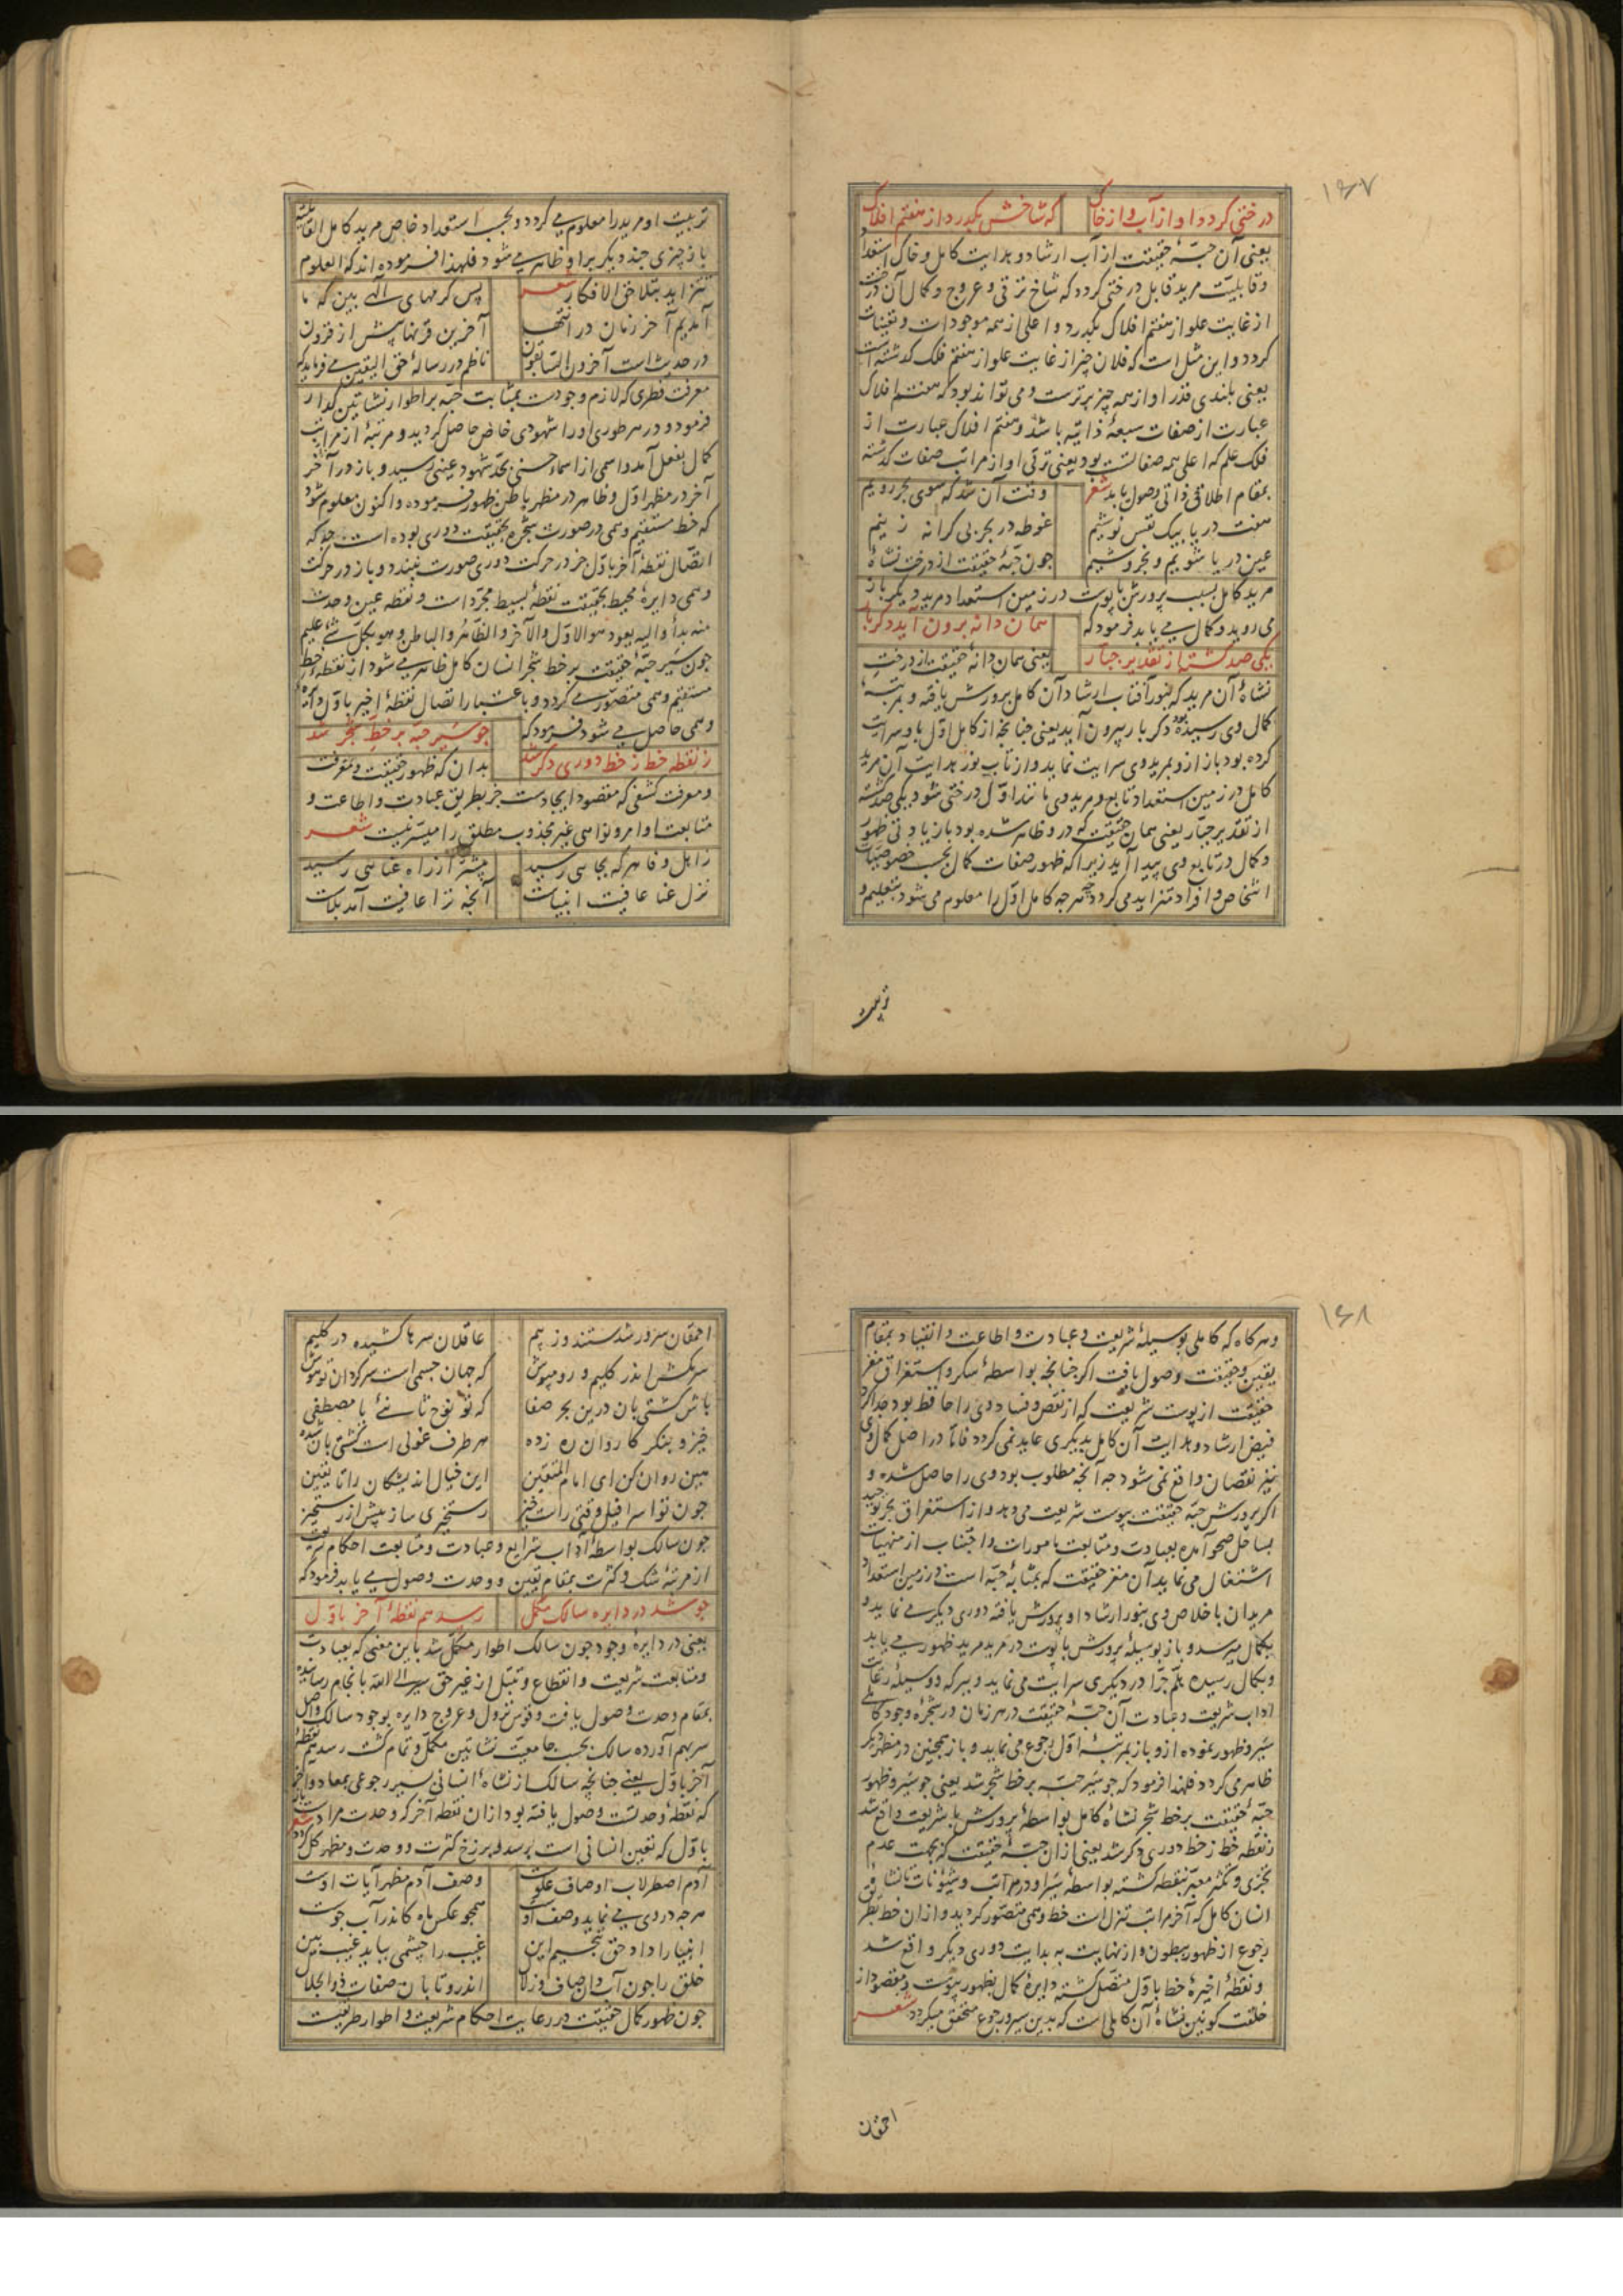 ۱۶۷
درختی کردد او از آب و از خاک که شاخش بکذرد از هفتم افلاک
یعنی آن حبّهٔ حقیقت از آب ارشاد و هدایت کامل و خاک استعداد
و قابلیّت مرید قابل درختی کردد که شاخ ترقی و عروج و کمال آن درخت
از غایت علو از هفتم افلاک بکذرد و اعلی از همه موجودات و تعینات
کردد و این مثل است که فلان چیز از غایت علو از هفتم فلک کذشته است
یعنی بلندی قدر او از همه چیز برترست و می تواند بود که هفتم افلاک
عبارت از صفات سبعهٔ ذاتیه باشد و هفتم افلاک عبارت از
فلک علم که اعلی همه صفاتست بود یعنی ترقی او از مراتب صفات کذشته
بمقام اطلاق ذاتی وصول یابد شعر وقت آن شد که سوی بحر رویم
هفت دریا بیک نفس نوشیم غوطه در بحر بی کرانه زنیم
عین دریا شویم و بخروشیم چون حبّهٔ حقیقت از درخت نشاهٔ
مرید کامل بسبب پرورش با پوست در زمین استعداد مرید دیکر باز
می روید و کمال می یابد فرمود که همان دانه برون آید دکر بار
یکی صد کشته از تقدیر جبار یعنی همان دانهٔ حقیقت از درخت
نشاهٔ آن مرید که بنور آفتاب ارشاد آن کامل پرورش یافته و بمرتبهٔ
کمال وی رسیده بود دکر بار بیرون آید یعنی چنانچه از کامل اول باو سرایت
کرده بود باز ازو بمریدوی سرایت نماید و از تاب نور هدایت آن مرید
کامل در زمین استعداد تابع و مریدوی مانند اول درختی شود یکی صد کشته
از تقدیر جبار یعنی همان حقیقت که درو ظاهر شده بود باز با زیادتی ظهور
و کمال در تابع وی پیدا آید زیرا که ظهور صفات کمال بحسب خصوصیات
اشخاص و افراد متزاید می کردد چه هرچه کامل اول را معلوم می شود بتعلیم و
تربیت
تربیت او مرید را معلوم می کردد و بحسب استعداد خاص مرید کامل القابلیه
باز چیزی چند دیکر برا و ظاهر می شود فلهذا فرموده اند که العلوم
تتزاید بتلاحق الافکار شعر پس کرمهای الهی بین که ما
آمدیم آخر زمان در انتها آخرین قرنها پیش از قرون
در حدیث است آخرون السابقون ناظم در رسالهٔ حق الیقین می فرماید که
معرفت فطری که لازم وجودست بمثابت حبّه بر اطوار نشاتین کذار
فرمود و در هر طوری او را شهودی خاص حاصل کردید و مرتبهٔ از مراتب
کمال بفعل آمد و اسمی از اسماء حسنی بحد شهود عینی رسید و باز در آخر
آخر در مظهر اول و ظاهر در مظهر باطن ظهور فرموده و اکنون معلوم شود
که خط مستقیم وهمی در صورت شجره بحقیقت دوری بوده است چه که
اتصال نقطهٔ آخر باول جز در حرکت دوری صورت نبندد و باز در حرکت
وهمی دایرهٔ محیط بحقیقت نقطهٔ بسیط مجرد است و نقطه عین وحدت
منه بدأ والیه یعود هو الاول والآخر والظاهر والباطن وهو بکل شیٔ علیم
چون سیر حبّهٔ حقیقت بر خط شجر انسان کامل ظاهر می شود از نقطهٔ خط
مستقیم وهمی متصور می کردد و باعتبار اتصال نقطهٔ اخیر باول دایرهٔ
وهمی حاصل می شود فرمود که چو سیر حبّه بر خط شجر شد
ز نقطه خط ز خط دوری دکر شد بدان که ظهور حقیقت و معرفت
و معرفت کشفی که مقصود ایجادست جز بطریق عبادت و اطاعت و
متابعت اوامر و نواهی غیر مجذوب مطلق را میسّر نیست شعر
ز اهل وفا هر که بجایی رسید پیشتر از راه عنایی رسید
نزل عنا عافیت انبیاست آنچه ترا عافیت آمد بلاست
۱۶۸
و هرکاه که کاملی بوسیلهٔ شریعت و عبادت و اطاعت و انقیاد بمقام
یقین و حقیقت وصول یافت اکر چنانچه بواسطهٔ سکر و استغراق مغز
حقیقت از پوست شریعت که از نقص و فساد وی را حافظ بود جدا کرد
فیض ارشاد و هدایت آن کامل بدیکری عاید نمی کردد فاما در اصل کمال وی
نیز نقصان واقع نمی شود چه آنچه مطلوب بود وی را حاصل شده و
اکر پرورش حبّهٔ حقیقت بپوست شریعت می دهد و از استغراق بحر توحید
بساحل صحو آمده بعبادت و متابعت مامورات و اجتناب از منهیات
اشتغال می نماید آن مغز حقیقت که بمثابهٔ حبّه است در زمین استعداد
مریدان با خلاص وی بنور ارشاد او پرورش یافته دوری دیکر می نماید و
بکمال میرسد و باز بوسیلهٔ پرورش با پوست در مرید مرید ظهور می یابد
و بکمال رسیده هلم جرّا در دیکری سرایت می نماید و ببرکه و وسیلهٔ رعایت
آداب شریعت و عبادت آن حبّهٔ حقیقت در هر زمان در شجرهٔ وجود کاملی
سیر و ظهور نموده ازو باز بمرتبهٔ اول رجوع می نماید و باز همچنین در مظهر دیکر
ظاهر می کردد فلهذا فرمود که چو سیر حبّه بر خط شجر شد یعنی چو سیر و ظهور
حبّهٔ حقیقت بر خط شجر نشاهٔ کامل بواسطهٔ پرورش با شریعت واقع شد
ز نقطه خط ز خط دوری دکر شد یعنی از ان حبّهٔ حقیقت که بجهت عدم
تجزی و تکثر معبر بنقطه کشته بواسطهٔ سیر او در مراتب و شئونات تا نشاهٔ
انسان کامل که آخر مراتب تنزلات است خط وهمی متصور کردید و از ان خط بطر
رجوع از ظهور ببطون و از نهایت به بدایت دوری دیکر واقع شد
و نقطهٔ اخیرهٔ خط باول متصل کشته دایرهٔ کمال بظهور پیوست و مقصود از
خلقت کونین نشاهٔ آن کاملی است که بدین سیر و رجوع متحقق میکردد شعر
احمقان
احمقان سرور شدستند و ز بیم عاقلان سرها کشیده در کلیم
سر مکش اندر کلیم و رو مپوش که جهان جسمی است سرکردان تو هوش
باش کشتی بان درین بحر صفا که تو نوح ثانیٔ یا مصطفی
خیز و بنکر کاروان ره زده هر طرف غولی است کشتی بان شده
هین روان کن ای امام المتقین این خیال اندیشکان را تا یقین
چون تو اسرافیل وقتی راست خیز رستخیزی ساز پیش از رستخیز
چون سالک بواسطهٔ آداب شرایع و عبادت و متابعت احکام شریعت
از مرتبهٔ شک و کثرت بمقام یقین و وحدت وصول می یابد فرمود که
چو شد در دایره سالک مکمل رسد هم نقطهٔ آخر باول
یعنی در دایرهٔ وجود چون سالک اطوار مکمل شد باین معنی که بعبادت
و متابعت شریعت و انقطاع و تبتل از غیر حق سیر الی الله بانجام رسانیده
بمقام وحدت وصول یافت و قوس نزول و عروج دایره بوجود سالک واصل
سر بهم آورده سالک بحسب جامعیت نشاتین مکمل و تمام کشت رسد هم نقطهٔ
آخر باول یعنی چنانچه سالک از نشاهٔ انسانی بسیر رجوعی بمعاد و آخر
که نقطهٔ وحدتست وصول یافته بود از ان نقطه آخر که وحدت مراد است باز
باول که تعین انسانی است برسد و برزخ کثرت و وحدت و مظهر کل کردد شعر
آدم اصطرلاب اوصاف علوست وصف آدم مظهر آیات اوست
هرچه در وی می نماید وصف اوست همچو عکس ماه کاندر آب جوست
انبیا را داد حق تنجیم این غیب را چشمی بباید غیب بین
خلق را چون آب دان صاف و زلال اندرو تابان صفات ذوالجلال
چون ظهور کمال حقیقت در رعایت احکام شریعت و اطوار طریقت